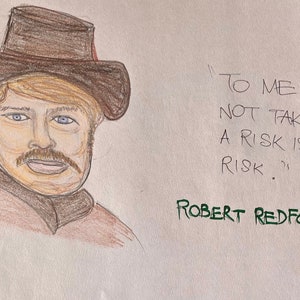 "TO ME
NOT TAK
A RISK IS
RISK."
ROBERT REDFO